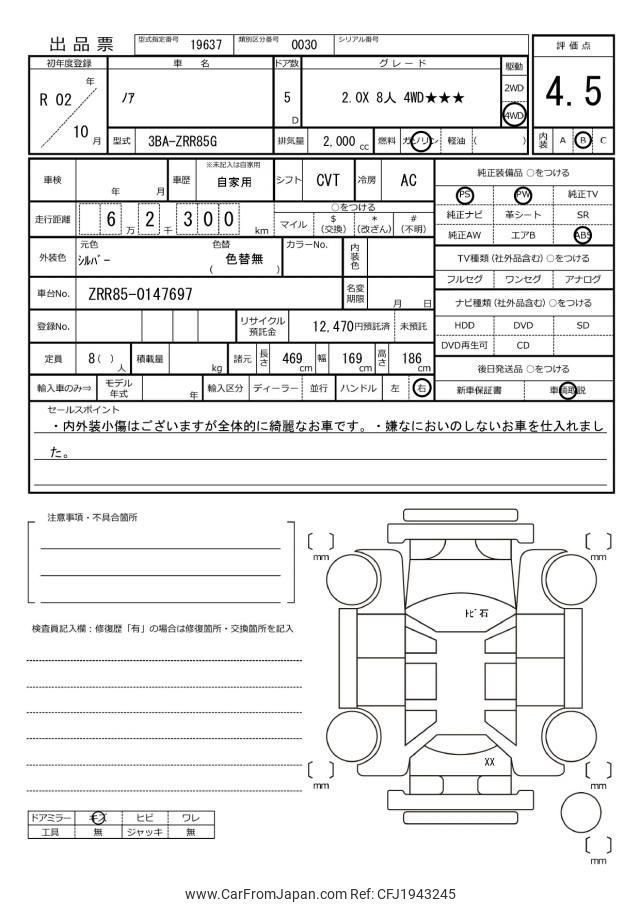 出品票 型式指定番号 19637 類別区分番号 0030 シリアル番号
評価点
4.5
内装 A B C
初年度登録 車名 ドア数 グレード 駆動
R 02 年 10 月 ノア 5 D 2.0X 8人 4WD★★★ 2WD 4WD
型式 3BA-ZRR85G 排気量 2,000 cc 燃料 ガソリン 軽油 ( )
車検 年 月 車歴 ※未記入は自家用 自家用 シフト CVT 冷房 AC
走行距離 6 2 万 3 千 0 0 km ○をつける
マイル $(交換) *(改ざん) #(不明)
外装色 元色 シルバー 色替 ( 色替無 ) カラーNo. 内装色
車台No. ZRR85-0147697 名変期限 月 日
登録No. リサイクル預託金 12,470円預託済 未預託
定員 8( )人 積載量 kg 諸元 長さ 469 cm 幅 169 cm 高さ 186 cm
輸入車のみ⇒ モデル年式 年 輸入区分 ディーラー 並行 ハンドル 左 右
純正装備品 ○をつける
PS PW 純正TV
純正ナビ 革シート SR
純正AW エアB ABS
TV種類(社外品含む)○をつける
フルセグ ワンセグ アナログ
ナビ種類(社外品含む)○をつける
HDD DVD SD
DVD再生可 CD
後日発送品 ○をつける
新車保証書 車輌取説
セールスポイント
・内外装小傷はございますが全体的に綺麗なお車です。・嫌なにおいのしないお車を仕入れまし
た。
注意事項・不具合箇所
検査員記入欄：修復歴「有」の場合は修復箇所・交換箇所を記入
mm
mm
トビ石
XX
mm
mm
mm
ドアミラー キズ ヒビ ワレ
工具 無 ジャッキ 無
www.CarFromJapan.com Ref: CFJ1943245